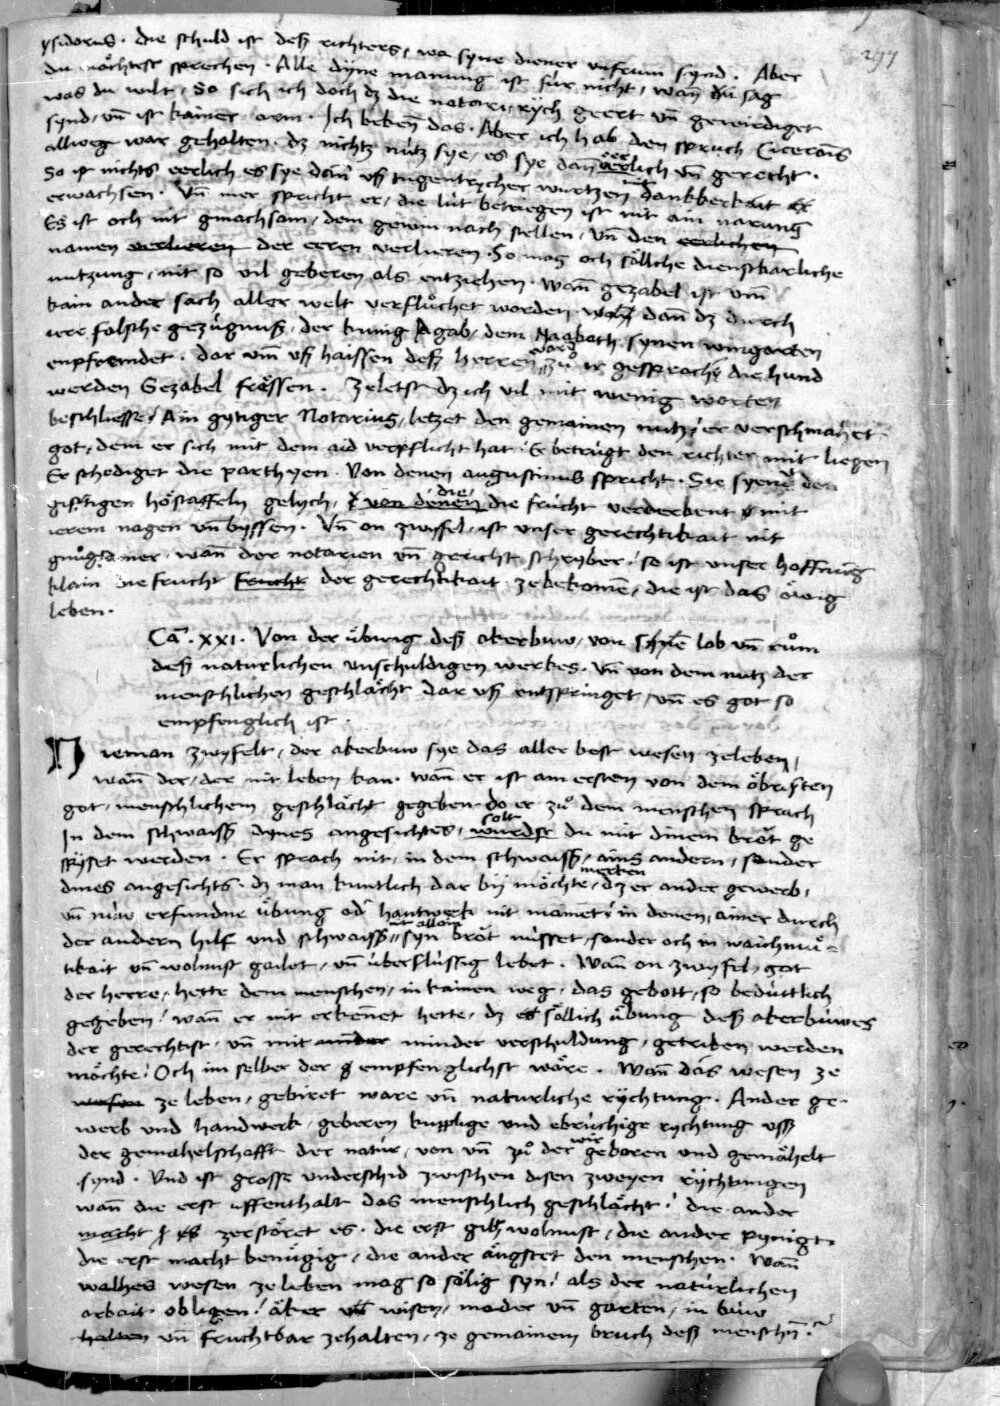 297
ysidorus. die schuld ist deß richters, wa syne diener unfrum synd. Aber
du möchtest sprechen. Alle dyne manung ist für nicht, wañ du sag
was du wilt, So sich ich doch dz die notari, rÿch geert uñ gewirdiget
synd, uñ ist kainer arm. Ich bekeñ das. Aber ich hab den spruch Ciceronis
allweg war gehalten. dz nichtz nütz sye, es sye dañ eerlich uñ gerecht.
So ist nichts eerlich es sye dañ uß tugentrycher wurtzen mit dankberkait
erwachsen. Uñ mer spricht er, die lüt betriegen ist nit ain narung
Es ist och nit gmachsam, dem gewin nach stellen, uñ den eerlichen
namen verlieren der eeren verlieren. So mag och söllche dienstbarliche
nutzung, nit so vil geberen als entziehen. wañ gezabel ist um̃
kain ander sach aller welt verflůchet worden dañ dz durch
ire falsche gezügnuß, der kunig Agab, dem Naaboth synen wingarten
enpfremdet. dar um̃ uß haissen deß herren, ward zů ir gesprochen die hund
werden Gezabel fressen. Zeletst dz ich vil mit wenig worten
beschliesse, Ain gytiger Notarius, letzet den gemainen nutz, er verschmähet
got, dem er sich mit dem aid verpflicht hat. Er betrügt den richter mit liegen
Er schediget die parthyen. Von denen augustinus spricht. Sie syend den
gifftigen höstaffeln gelych, von denen die die frücht verderbent mit
ierem nagen uñ byssen. Uñ on zwiffel, ist unser gerechtikait nit
gnůgsamer, wañ der notarien uñ gericht schryber, so ist unser hoffnung
klain die frucht frucht der gerechtikait zebekomen, die ist das ewig
leben.
Ca. xxi. Von der übung deß akerbuw, von schyn lob uñ rům
deß naturlichen unschuldigen werkes. uñ von dem nutz der
menschlichen geschlächt dar uß entspringet, uñ es got so
empfenglich ist.
Nieman zwyfelt, der akerbuw sye das aller best wesen zeleben,
wañ der, der nit leben kan. wañ er ist am ersten von dem öbristen
got, menschlichem geschlächt gegeben. do er zů dem menschen sprach
In dem schwaiß dynes angesichtes, wurdst solt du mit dinem brot ge
spyset werden. Er sprach nit, in dem schwaiß, ains andern, sonder
dines angesichts. dz man kuntlich dar bij möchte, merken dz er ander gewerb,
uñ nüw erfundne übung od hantwerk nit mainet, in denen, ainer durch
der andern hilf und schwaiß nit allain syn brot nüsset, sonder och in waichmü
tikait uñ wolnust gailet, uñ überflüssig lebet. Wañ on zwyfel, got
der herre, hette dem menschen, in kainen weg, das gebott, so bedüttlich
gegeben, wañ er nit erkeñet hette, dz es söllich übung deß akerbuwes
der gerechtist, uñ mit ainder minder verschuldung, getriben werden
möchte. Och im selber der empfenglichst wäre. Wañ das wesen ze
wesen ze leben, gebiret ware uñ naturliche rychtung. Ander ge-
werb und handwerk, geberen kupplige und ebrüchige rychtung uß
der gemahelschafft der natur, von uñ zů der wir geboren und gemähelt
synd. Und ist grosse underschid zwischen disen zweyen rychtungen
wañ die erst uffenthalt das menschlich geschlächt, die ander
macht es zerstöret es. die erst gibt wolnust, die ander pynigt
die erst macht benügig, die ander ängstet den menschen. Wañ
walhes wesen zeleben mag so sälig syn, als der natürlichen
arbait obligen, äker wisen, mader uñ garten, in buw
halten uñ fruchtbar zehalten, ze gemainem bruch deß menschen.